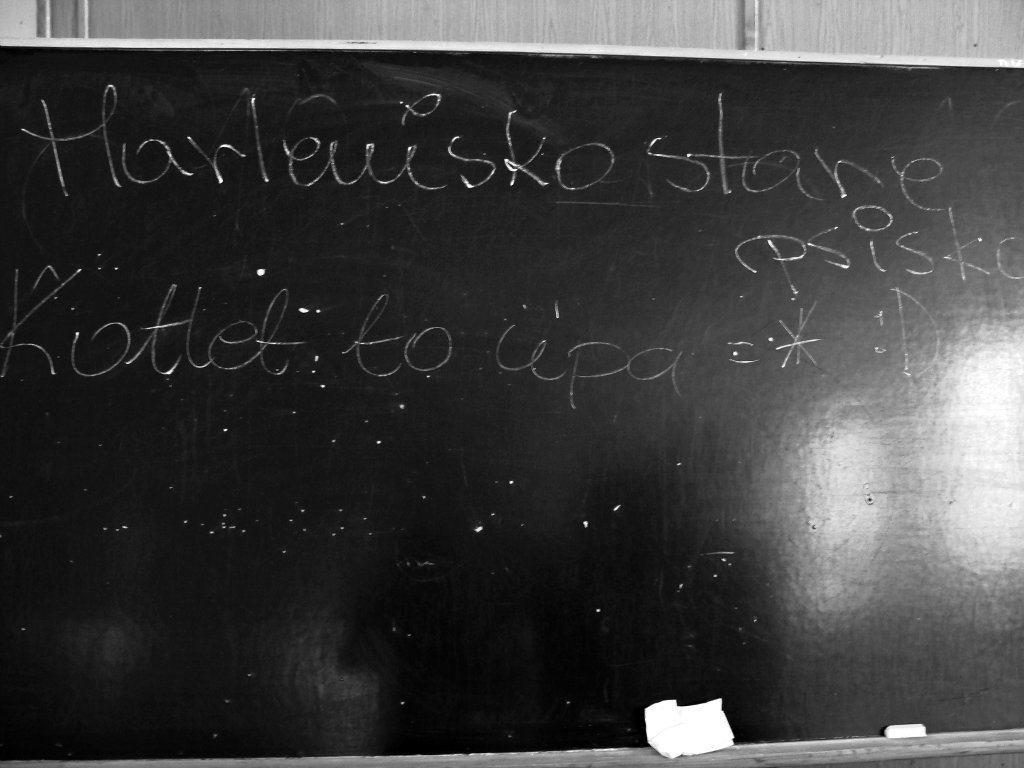 Harleuisko stare
psisko
Kotlet to üpa =* :D